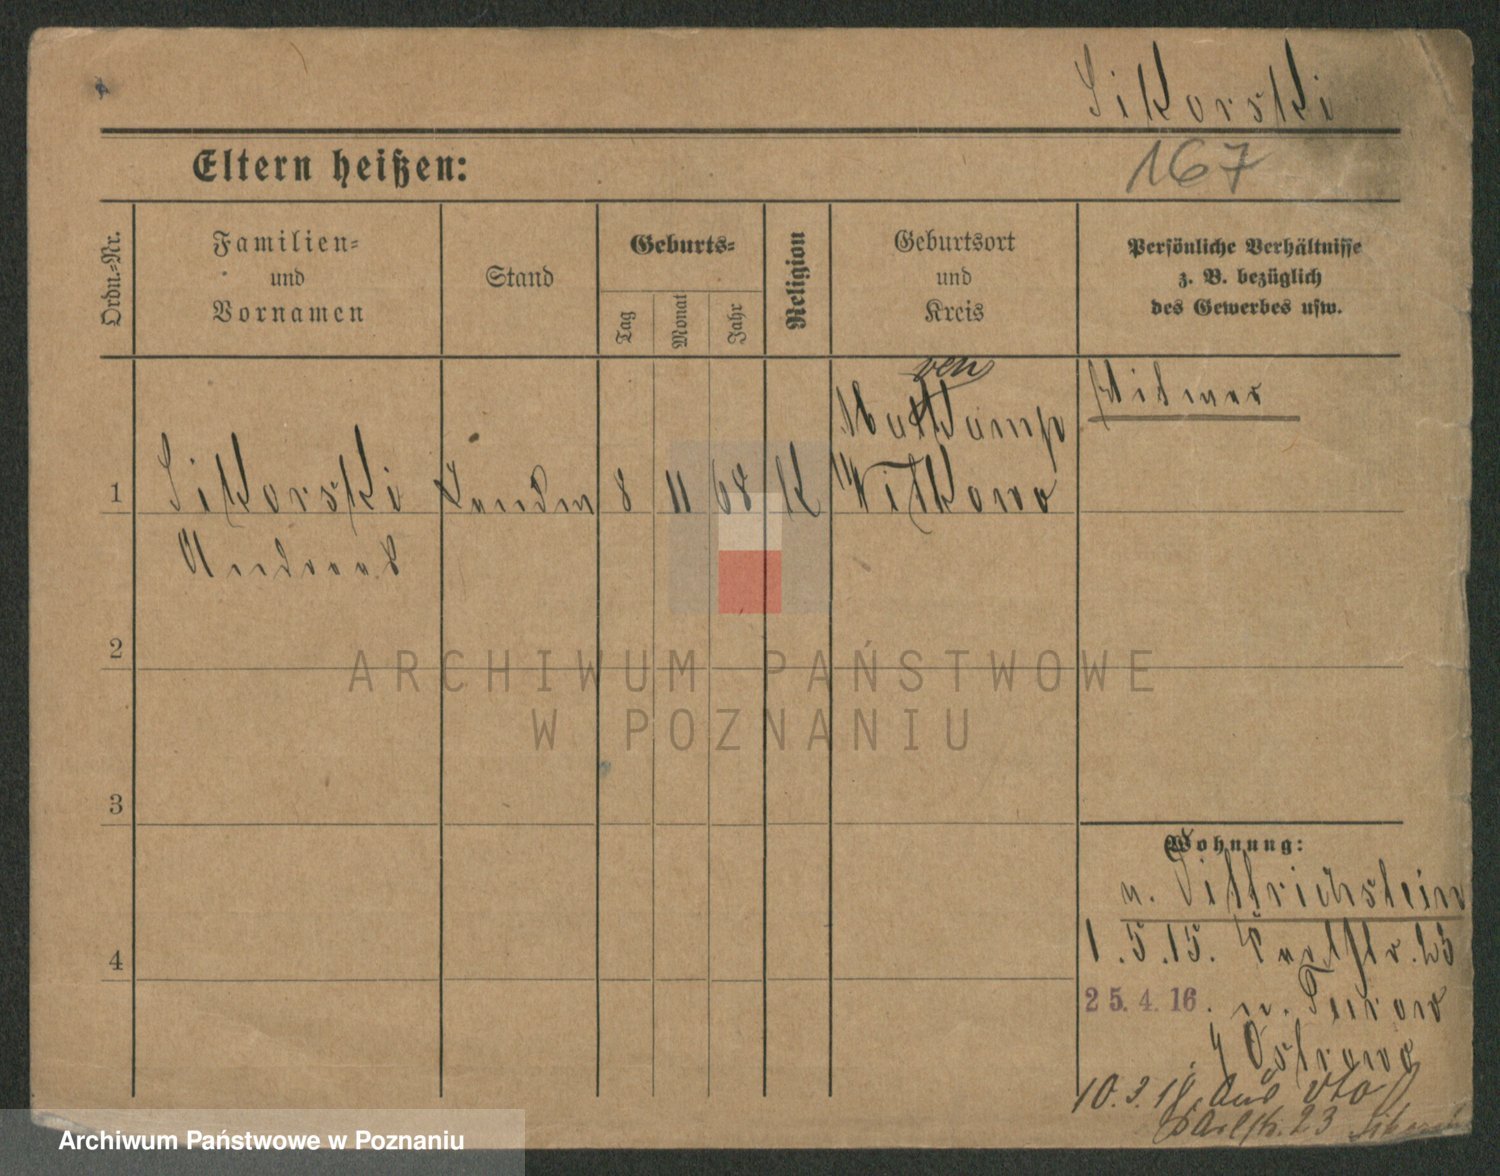 Sikorski
Eltern heißen:
167
Ordn.-Nr.
Familien-
und
Vornamen
Stand
Geburts-
Tag
Monat
Jahr
Religion
Geburtsort
und
Kreis
Persönliche Verhältnisse
z. B. bezüglich
des Gewerbes usw.
Witkowo
1
Sikorski
8
11
68
K
Andreas
2
3
4
Wohnung:
n. Dittrichstein
1.5.15.
23
25.4.16. n. Turow
Ostrowo
10.3.18. aus
23
ARCHIWUM PAŃSTWOWE
W POZNANIU
Archiwum Państwowe w Poznaniu